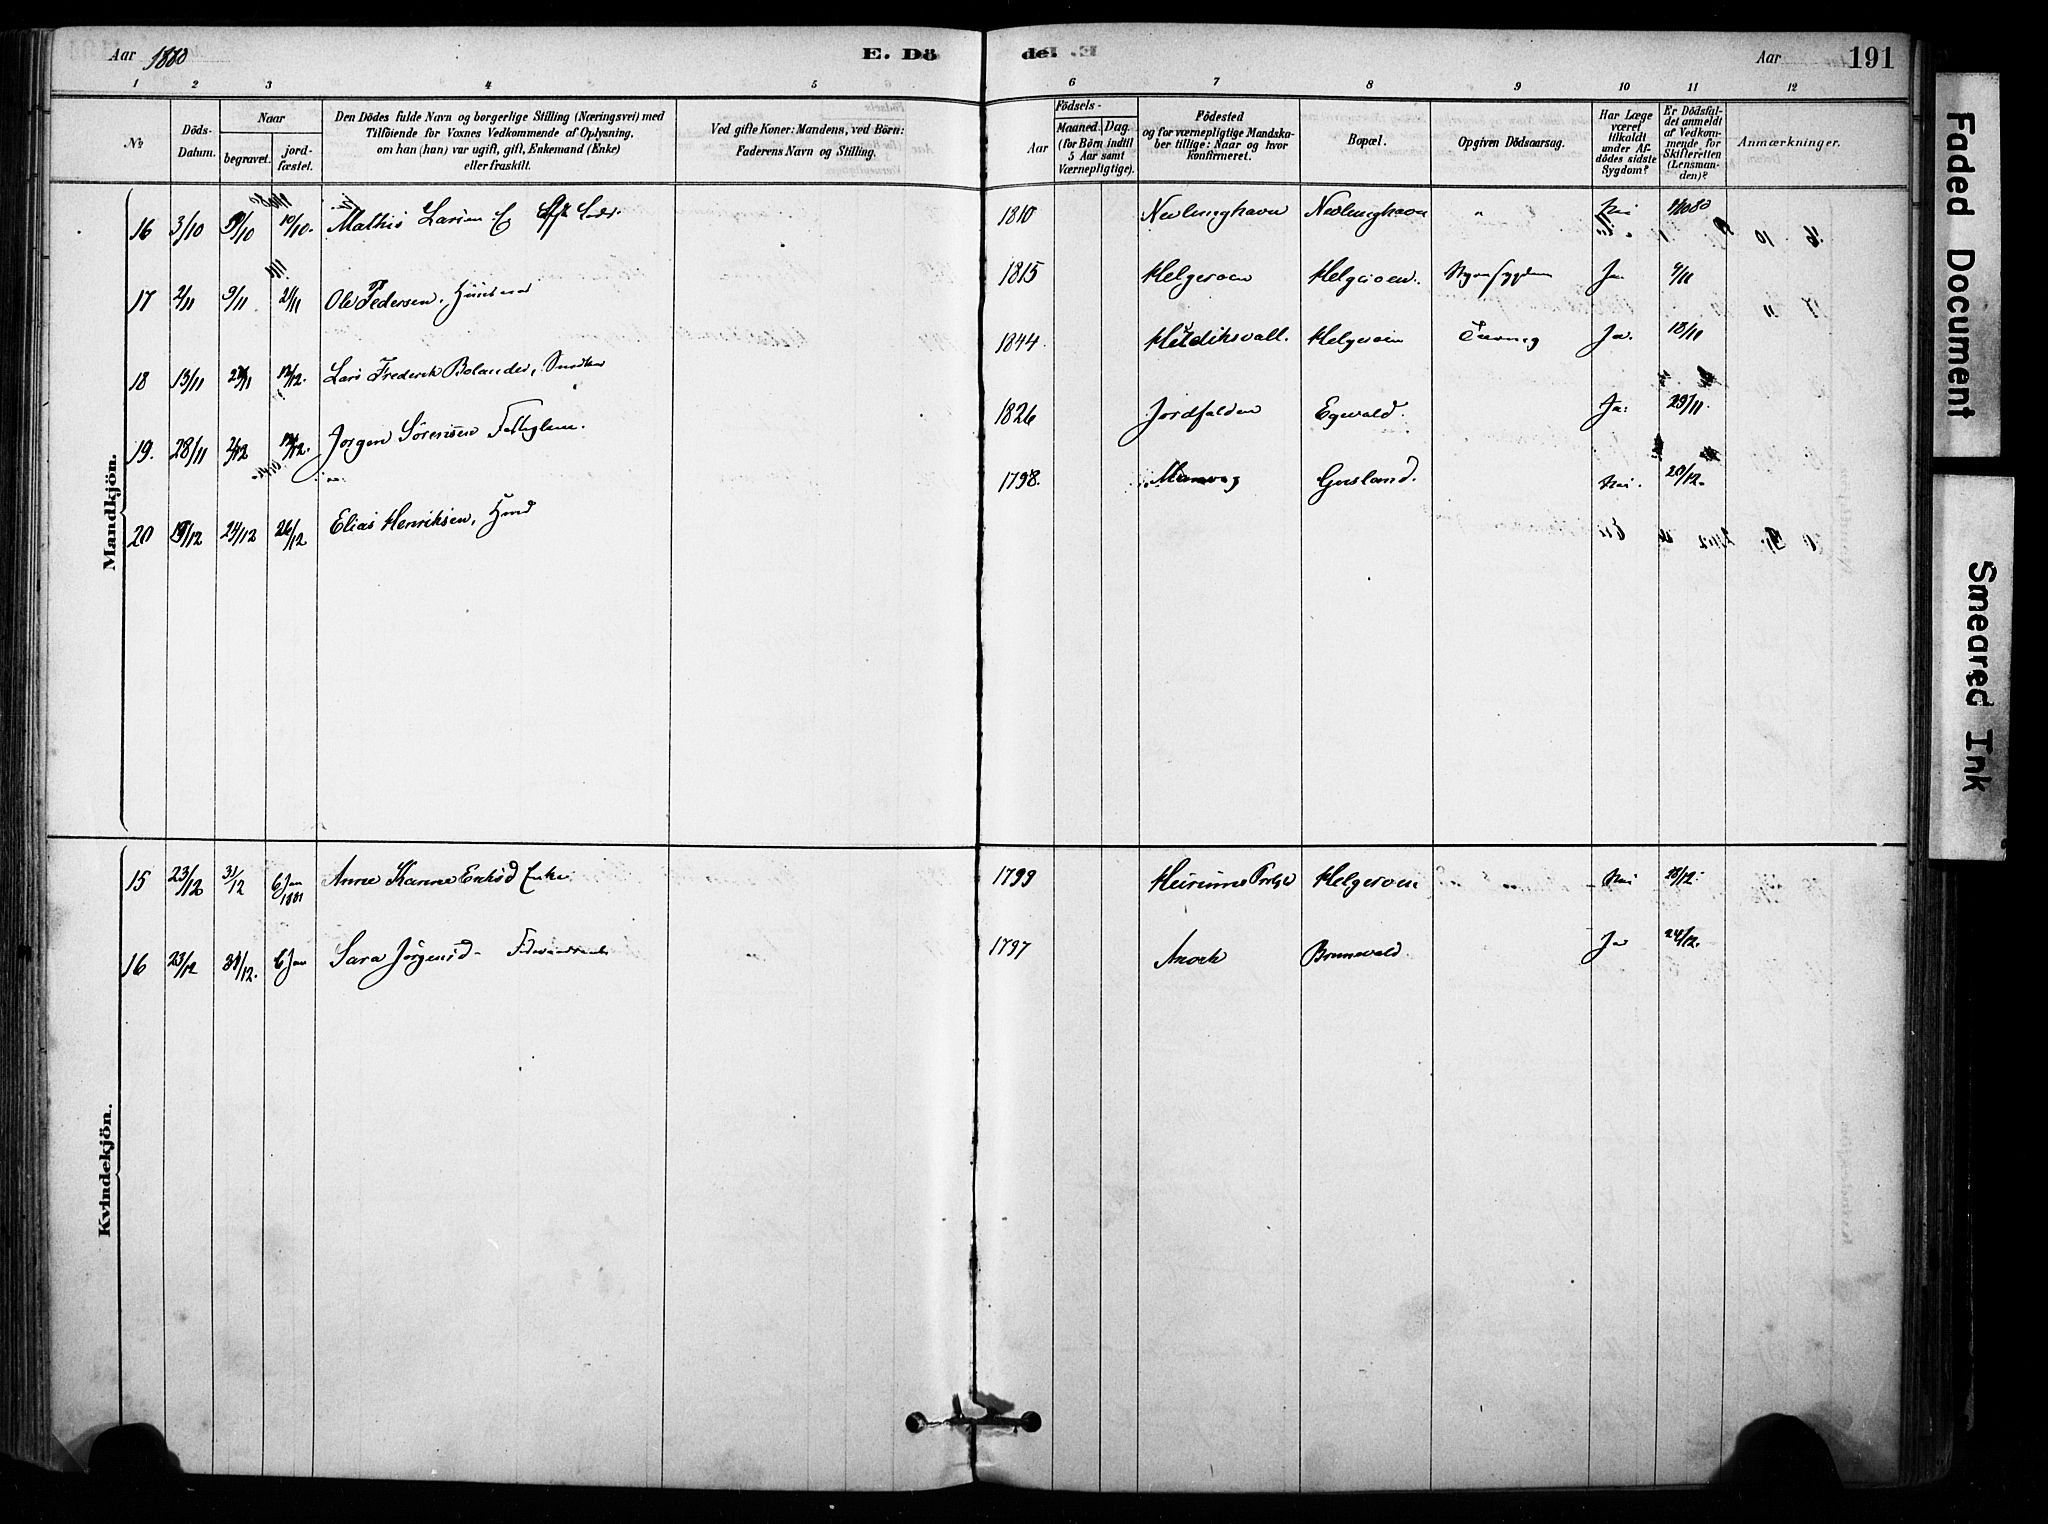 Aar 1880
E. Dö
de.
Aar 191
1 2 3 4 5 6 7 8 9 10 11 12
№
Döds-Datum.
Naar
begravet.
jord-fæstet.
Den Dödes fulde Navn og borgerlige Stilling (Næringsvei) med
Tilföiende for Voxnes Vedkommende af Oplysning,
om han (han) var ugift, gift, Enkemand (Enke)
eller fraskilt.
Ved gifte Koner: Mandens, ved Börn:
Faderens Navn og Stilling.
Födsels-
Aar
Maaned. Dag.
(for Börn indtil
5 Aar samt
Værnepligtige).
Födested
og for værnepligtige Mandska-
ber tillige: Naar og hvor
konfirmeret.
Bopæl.
Opgiven Dödsaarsag.
Har Læge
været
tilkaldt
under Af-
dödes sidste
Sygdom?
Er Dödsfal-
det anmeldt
af Vedkom-
mende for
Skifteretten
(Lensman-
den)?
Anmærkninger.
Mandkjön.
16 3/10 9/10 10/10. Mathis Larsen 1810 Nevlunghavn Nevlunghavn " Nei
17 2/11 9/11 21/11 Ole Pedersen, Huusmand 1815 Helgeroen Helgeroen. Ja 4/11
18 13/11 12/12. Lars Frederik Bolander, Snedker 1844 Helgeroen Ja. 18/11
19. 28/11 2/12 12/12. Jørgen Sörensen Fattiglem. 1826 Jordfalden Egevald. Ja. 29/11.
20 19/12 24/12 26/12 Elias Henriksen, Huusd 1798. Gusland. Nei. 20/12.
Kvindekjön.
15 23/12 31/12 6 Jan 1881 Anne Karine Eriksd Enke. 1799 Helgeroen Nei 28/12.
16 23/12 31/12. 6 Jan Sara Jörgensd. 1797 Anvik Brunevald. Ja 24/12.
Faded Document
Smeared Ink